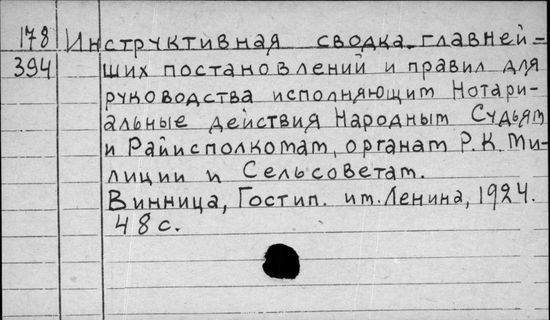 178 Инструктивная сводка главней-
394 ших постановлений и правил для
руководства исполняющим Нотари-
альные действия Народным Судьям
и Райисполкомам, органам Р.К. Ми-
лиции и Сельсоветам.
Винница, Гостип. им. Ленина, 1924.
48 с.